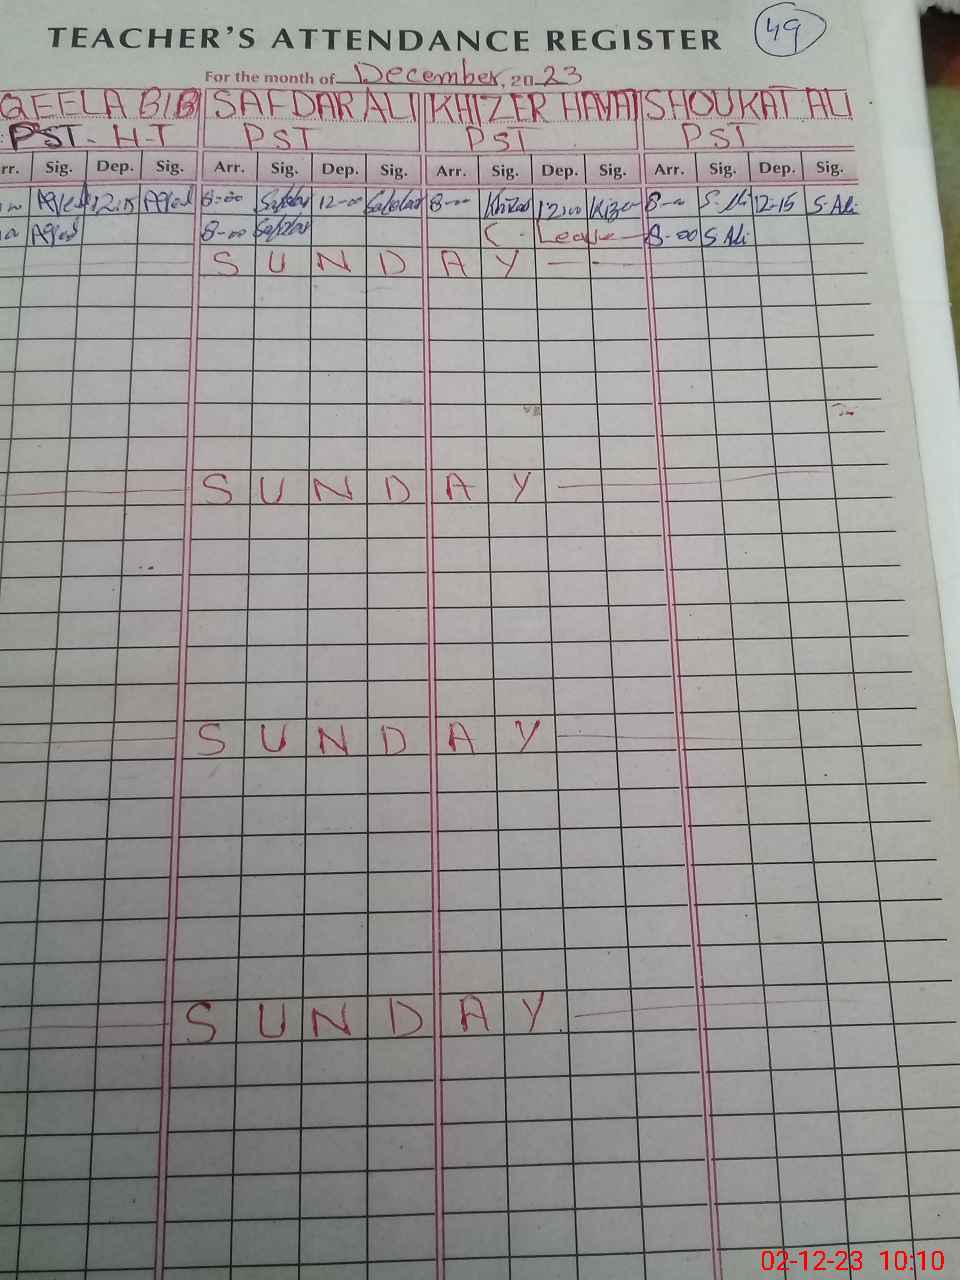 TEACHER'S ATTENDANCE REGISTER 49
For the month of December, 2023
QEELA BIB SAFDAR ALI KHIZER HAYAT SHOUKAT ALI
PST - H-T PST PST PST
rr. Sig. Dep. Sig. Arr. Sig. Dep. Sig. Arr. Sig. Dep. Sig. Arr. Sig. Dep. Sig.
12:15 8-00 Safdar 12-00 Safdar 8-00 12:00 8-00 S. Ali 12-15 S. Ali
8-00 Safdar C. Leave 8-00 S Ali
SUNDAY
SUNDAY
SUNDAY
SUNDAY
02-12-23 10:10